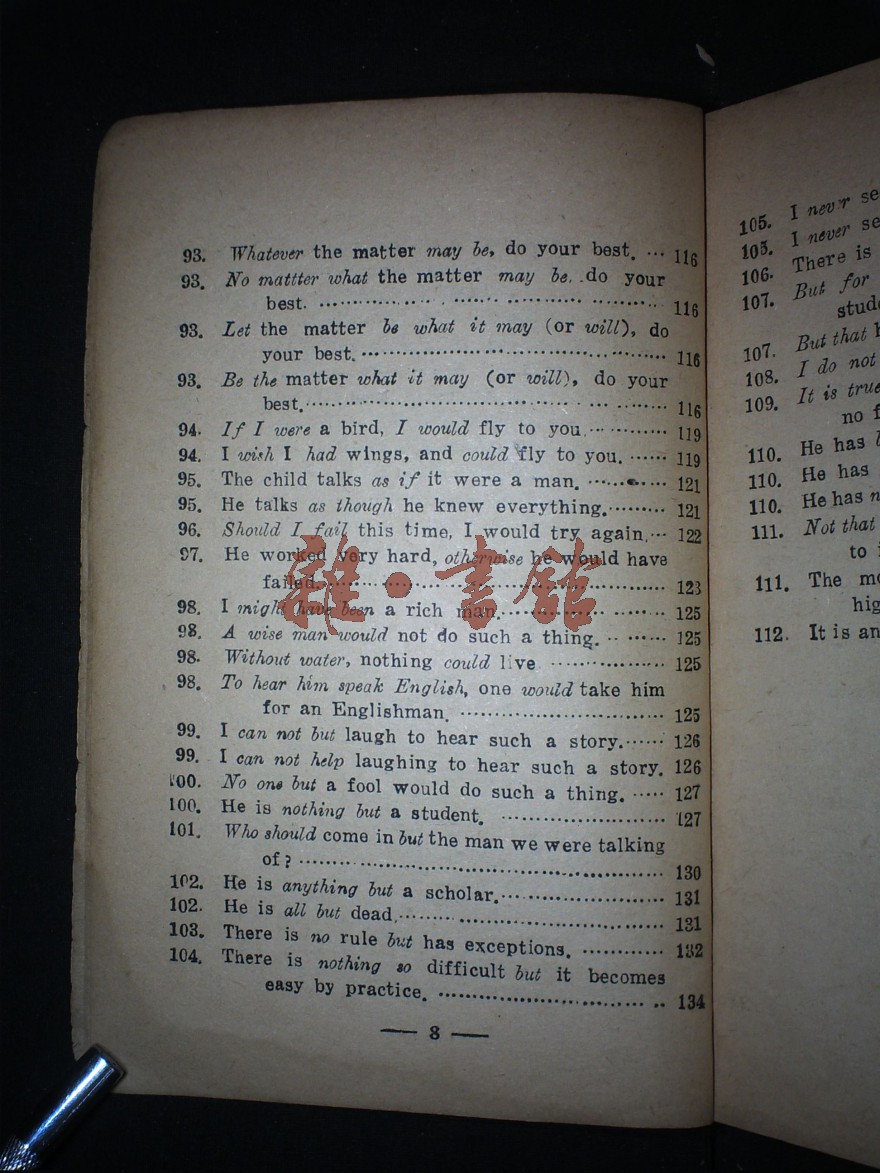 93. Whatever the matter may be, do your best. ... 116
93. No mattter what the matter may be. .do your
best. ........................ 116
93. Let the matter be what it may (or will), do
your best. ........................ 116
93. Be the matter what it may (or will), do your
best. ........................ 116
94. If I were a bird, I would fly to you. ............ 119
94. I wish I had wings, and could fly to you. ...... 119
95. The child talks as if it were a man. ............ 121
95. He talks as though he knew everything. ......... 121
96. Should I fail this time, I would try again. ... 122
97. He worked very hard, otherwise he would have
failed. ........................ 123
98. I might have been a rich man. .................. 125
98. A wise man would not do such a thing. ......... 125
98. Without water, nothing could live .................. 125
98. To hear him speak English, one would take him
for an Englishman. ........................ 125
99. I can not but laugh to hear such a story. ...... 126
99. I can not help laughing to hear such a story. 126
100. No one but a fool would do such a thing. ..... 127
100. He is nothing but a student. .................. 127
101. Who should come in but the man we were talking
of? ........................ 130
102. He is anything but a scholar. .................. 131
102. He is all but dead. ........................ 131
103. There is no rule but has exceptions. ............ 132
104. There is nothing so difficult but it becomes
easy by practice. ........................ 134
— 8 —
105. I never se
105. I never se
106. There is
107. But for
stud
107. But that
108. I do not
109. It is true
no f
110. He has
110. He has
110. He has n
111. Not that
to i
111. The mo
hig
112. It is an
雜·書館